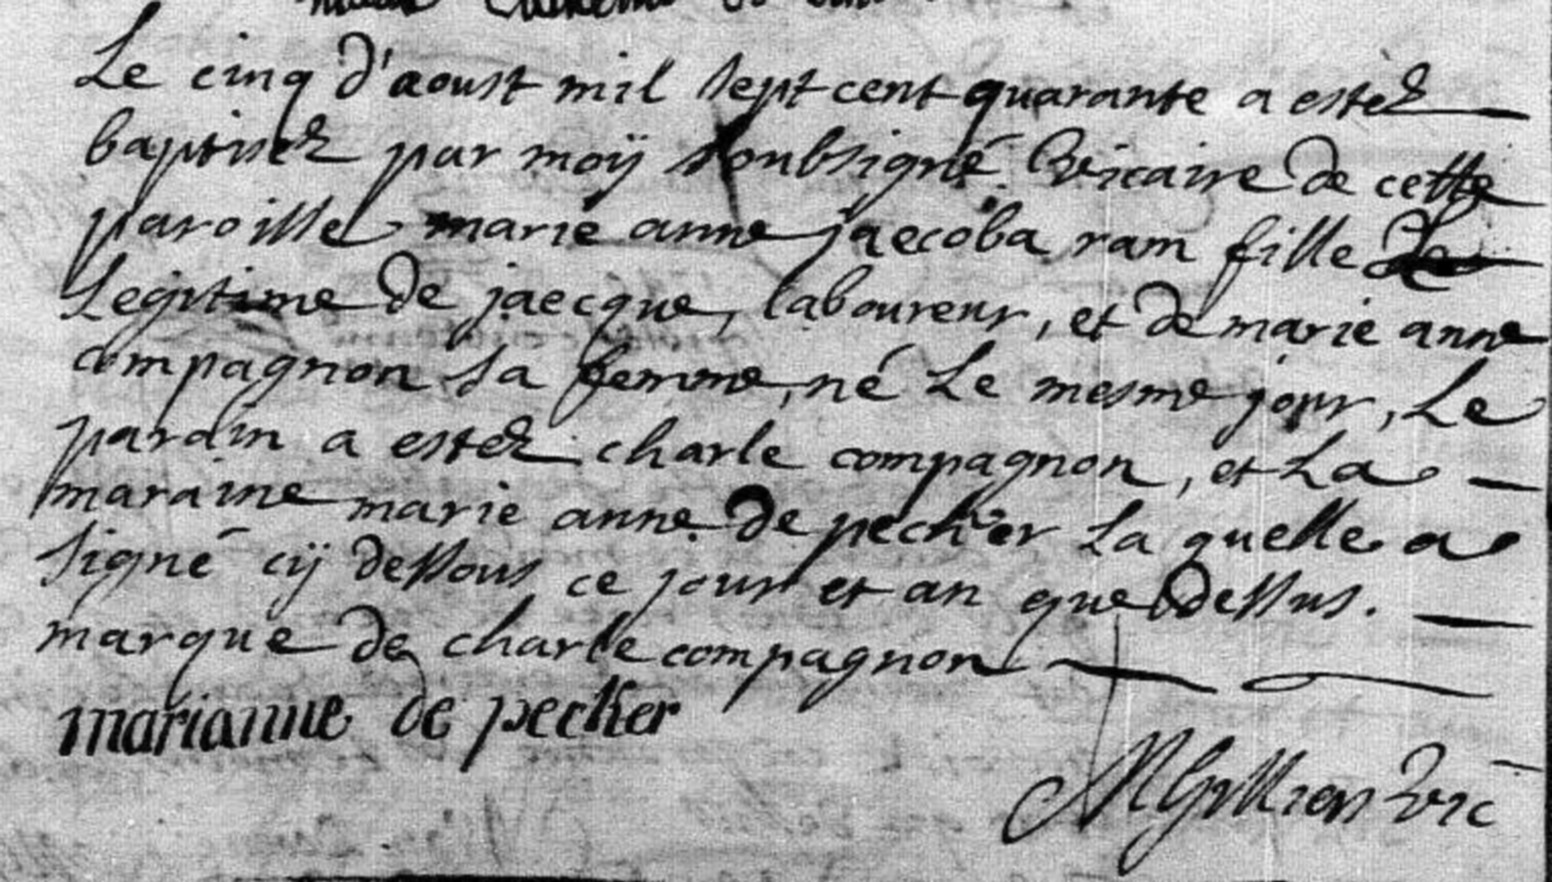 Le cinq d'aoust mil sept cent quarante a estez
baptisez par moÿ soubsigné Vicaire de cette
paroisse marie anne jaecoba ram fille
Legitime de jaecque, laboureur, et de marie anne
compagnon sa femme, né Le mesme jour, Le
parain a estez charle compagnon, et La
maraine marie anne de pecher La quelle a
signé cÿ dessous ce jour et an que dessus.
marque de charle compagnon
marianne de pecker
vic